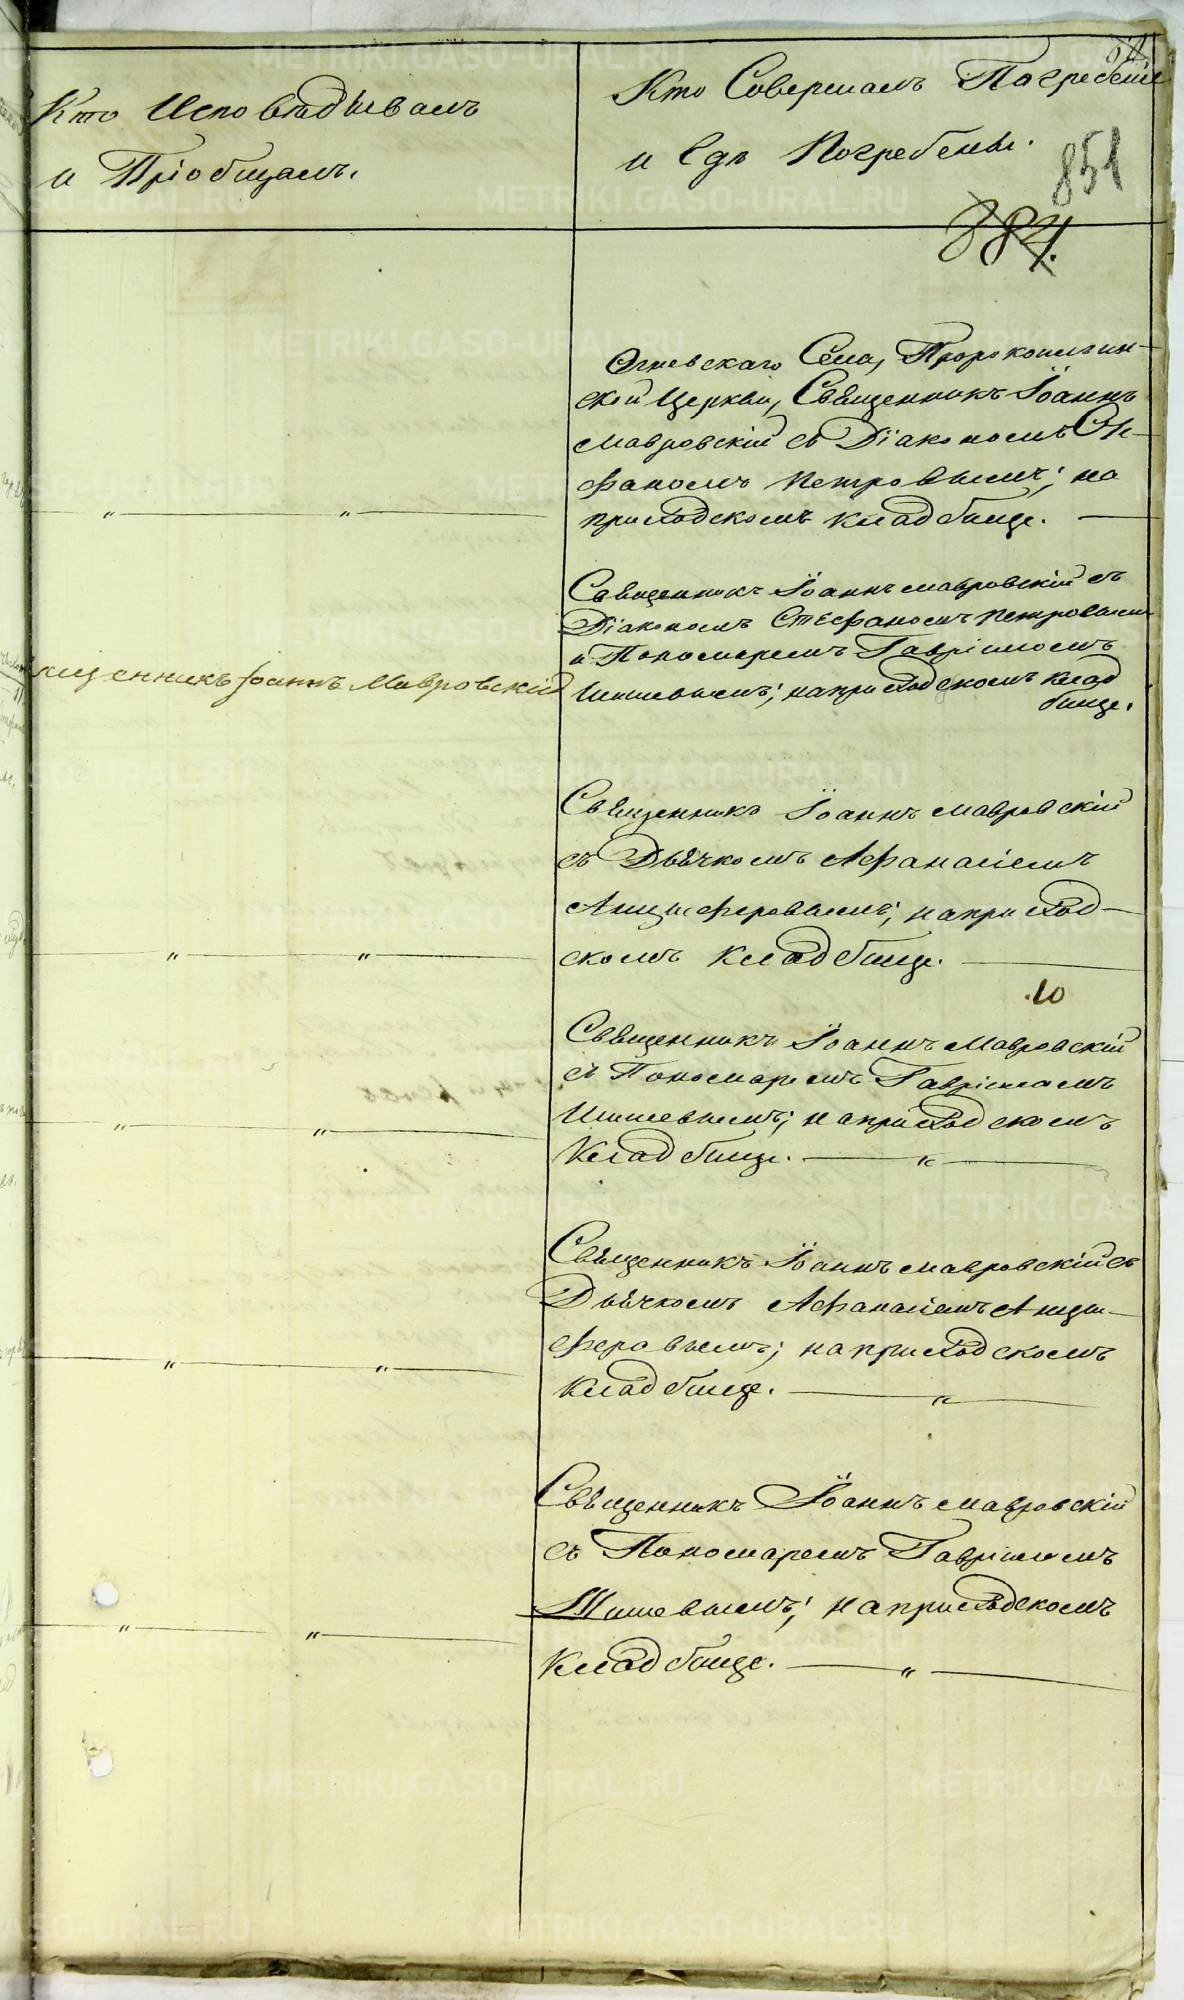 Кто Исповѣдывалъ
и Пріобщалъ.
Кто Совершалъ Погребеніе
и Гдѣ Погребены.
851
884.
Огневскаго Села, Пророкоильин-
ской Церкви, Священникъ Іоаннъ
Мавровскій съ Діакономъ Сте-
фаномъ Петровымъ; на
приходскомъ кладбище.
Священникъ Іоаннъ Мавровскій съ
Діакономъ Стефаномъ Петровымъ
и Пономаремъ Гавріиломъ
Шишевымъ; на приходскомъ клад
бище.
щенникъ Іоаннъ Мавровскій
Священникъ Іоаннъ Мавровскій
съ Дьячкомъ Афанасіемъ
Анциферовымъ; на приход-
скомъ кладбище.
10
Священникъ Іоаннъ Мавровскій
съ Пономаремъ Гавріиломъ
Шишевымъ; на приходскомъ
кладбище.
Священникъ Іоаннъ Мавровскій съ
Дьячкомъ Афанасіемъ Анци-
феровымъ; на приходскомъ
кладбище.
Священникъ Іоаннъ Мавровскій
съ Пономаремъ Гавріиломъ
Шишевымъ; на приходскомъ
кладбище.
METRIKI.GASO-URAL.RU